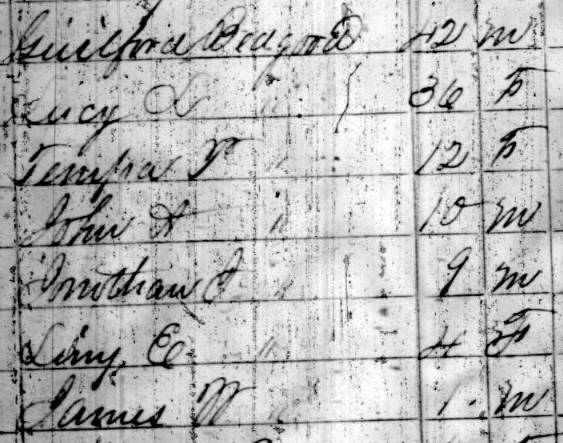 Guilford Bedgood 42 m
Lucy L " 36 F
Tempa V " 12 F
John A " 10 m
Jonathan J " 9 m
E " 4 F
James W " 1 m